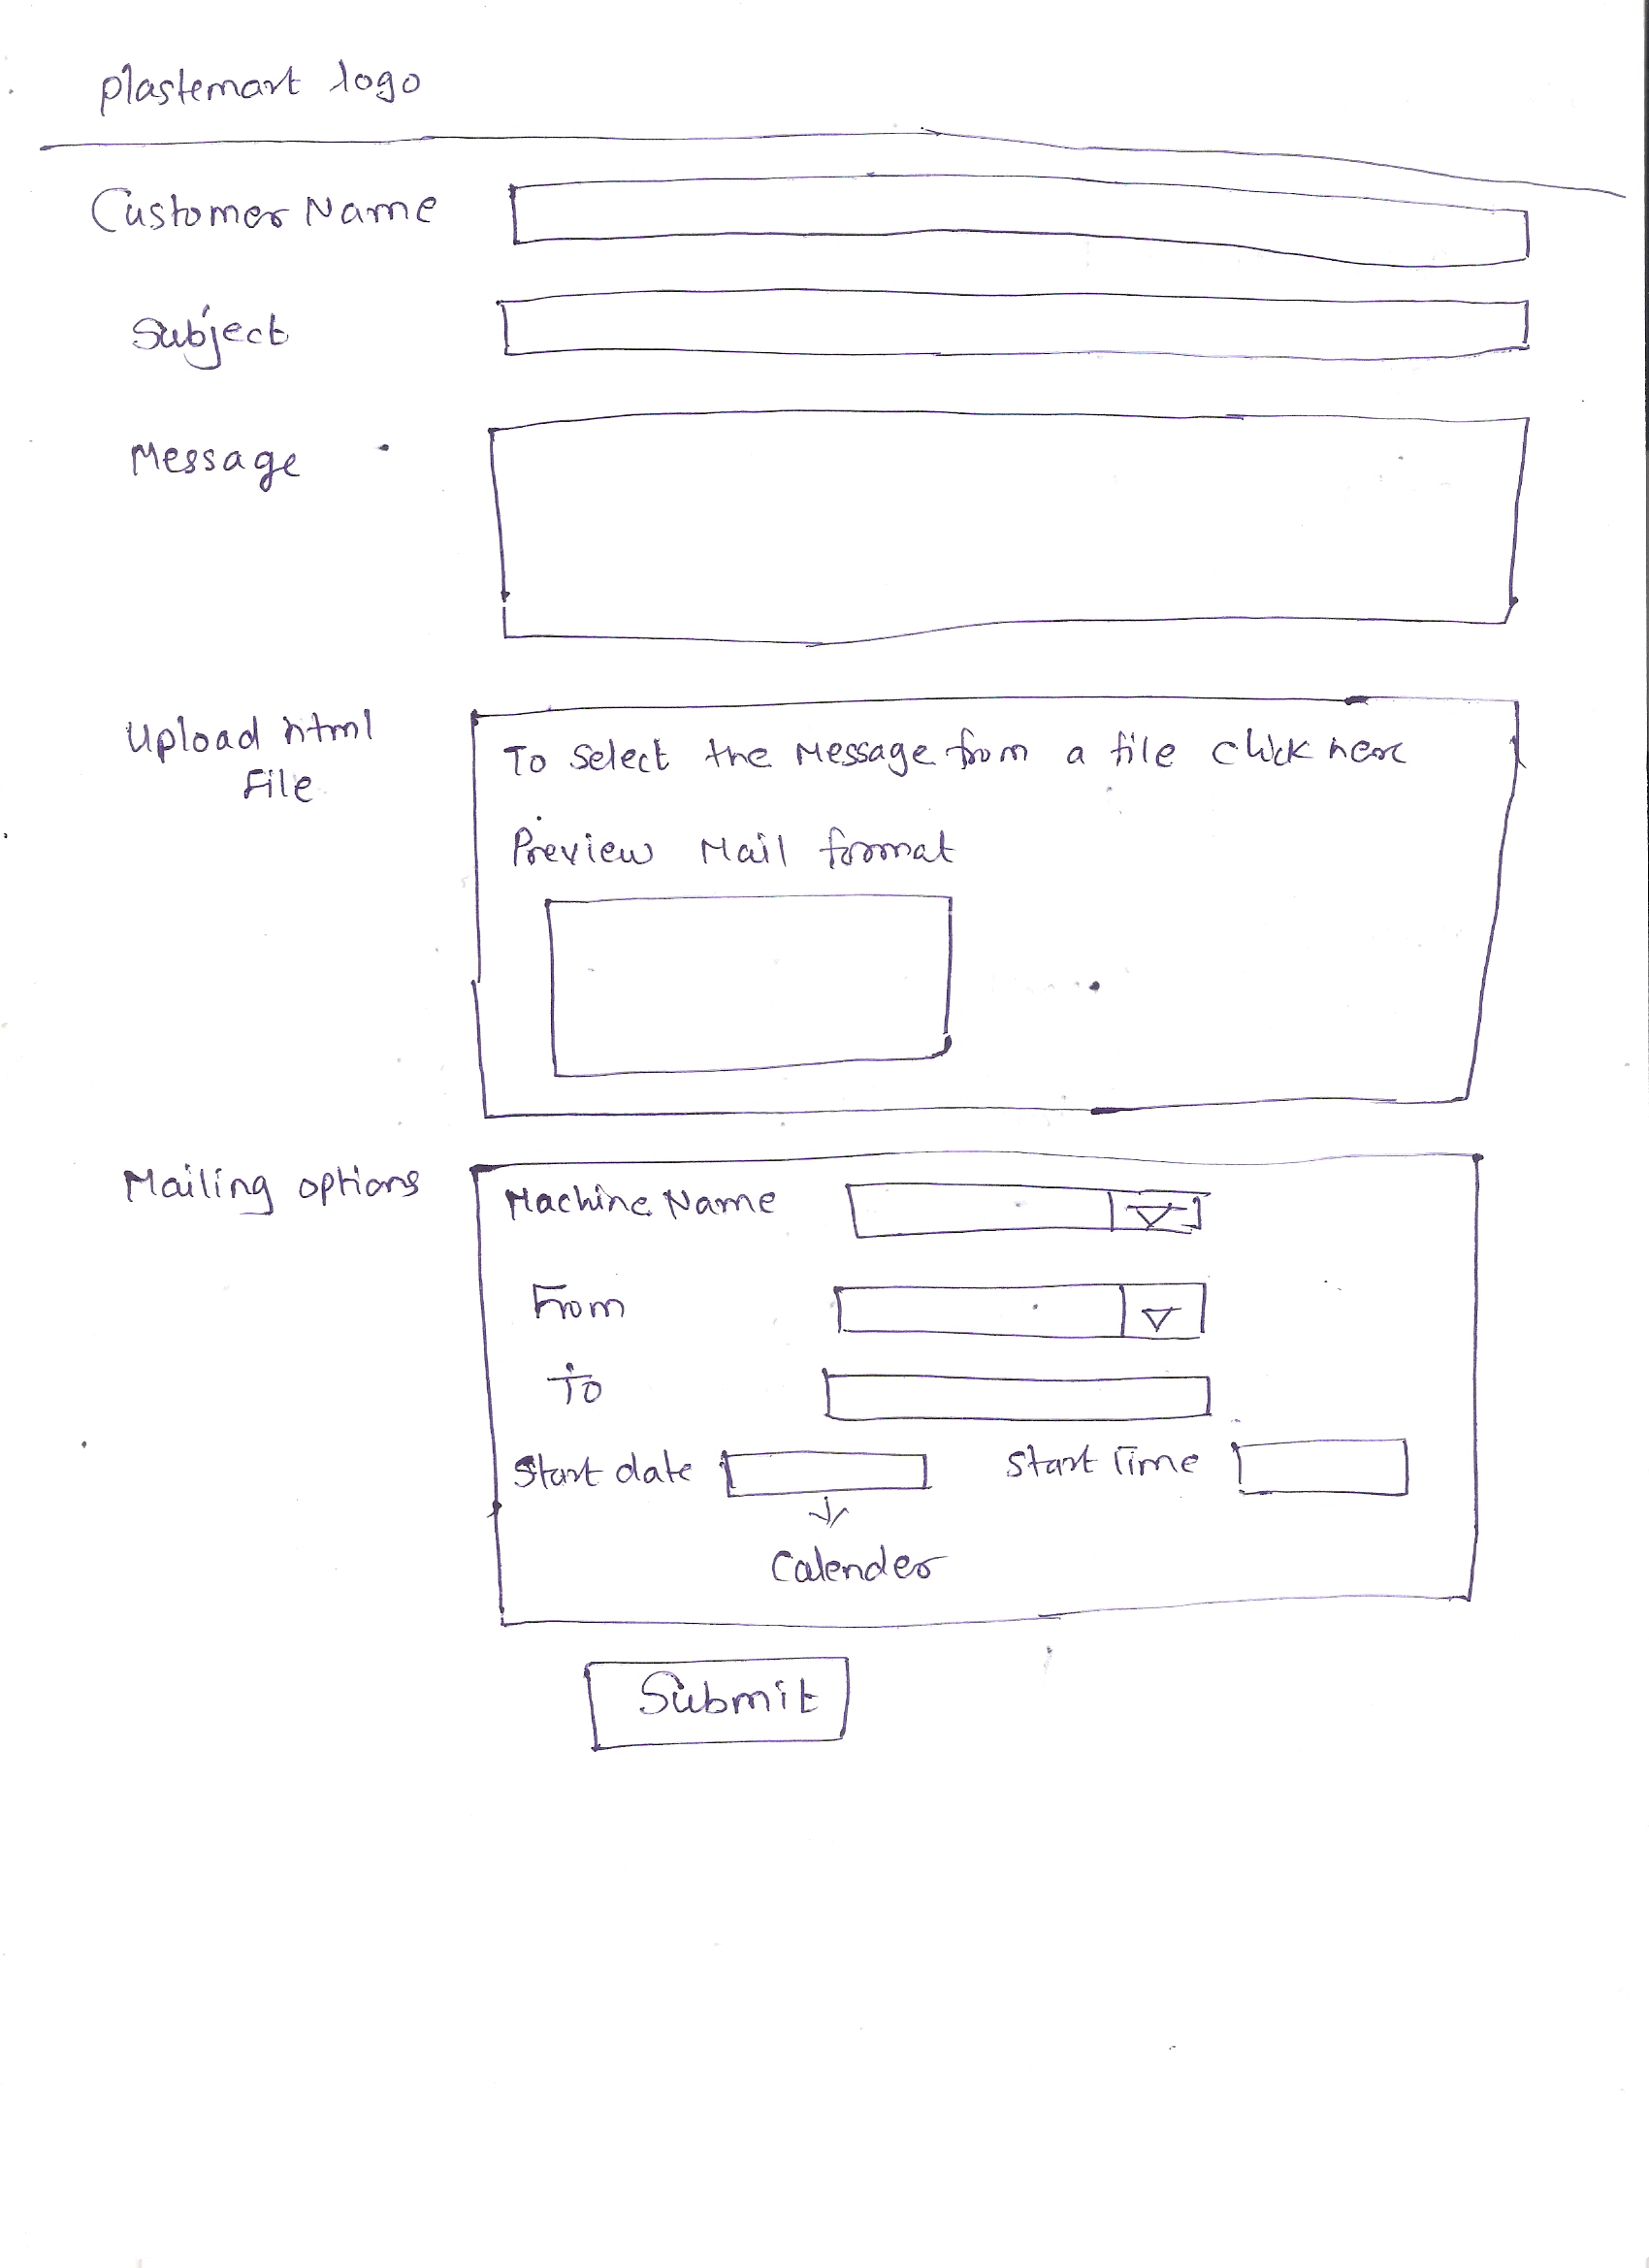 plastemart logo
Customer Name
Subject
Message
Upload html
File
To select the Message from a file click here
Preview Mail format
Mailing options
Machine Name
From
To
Start date
Start Time
Calender
Submit